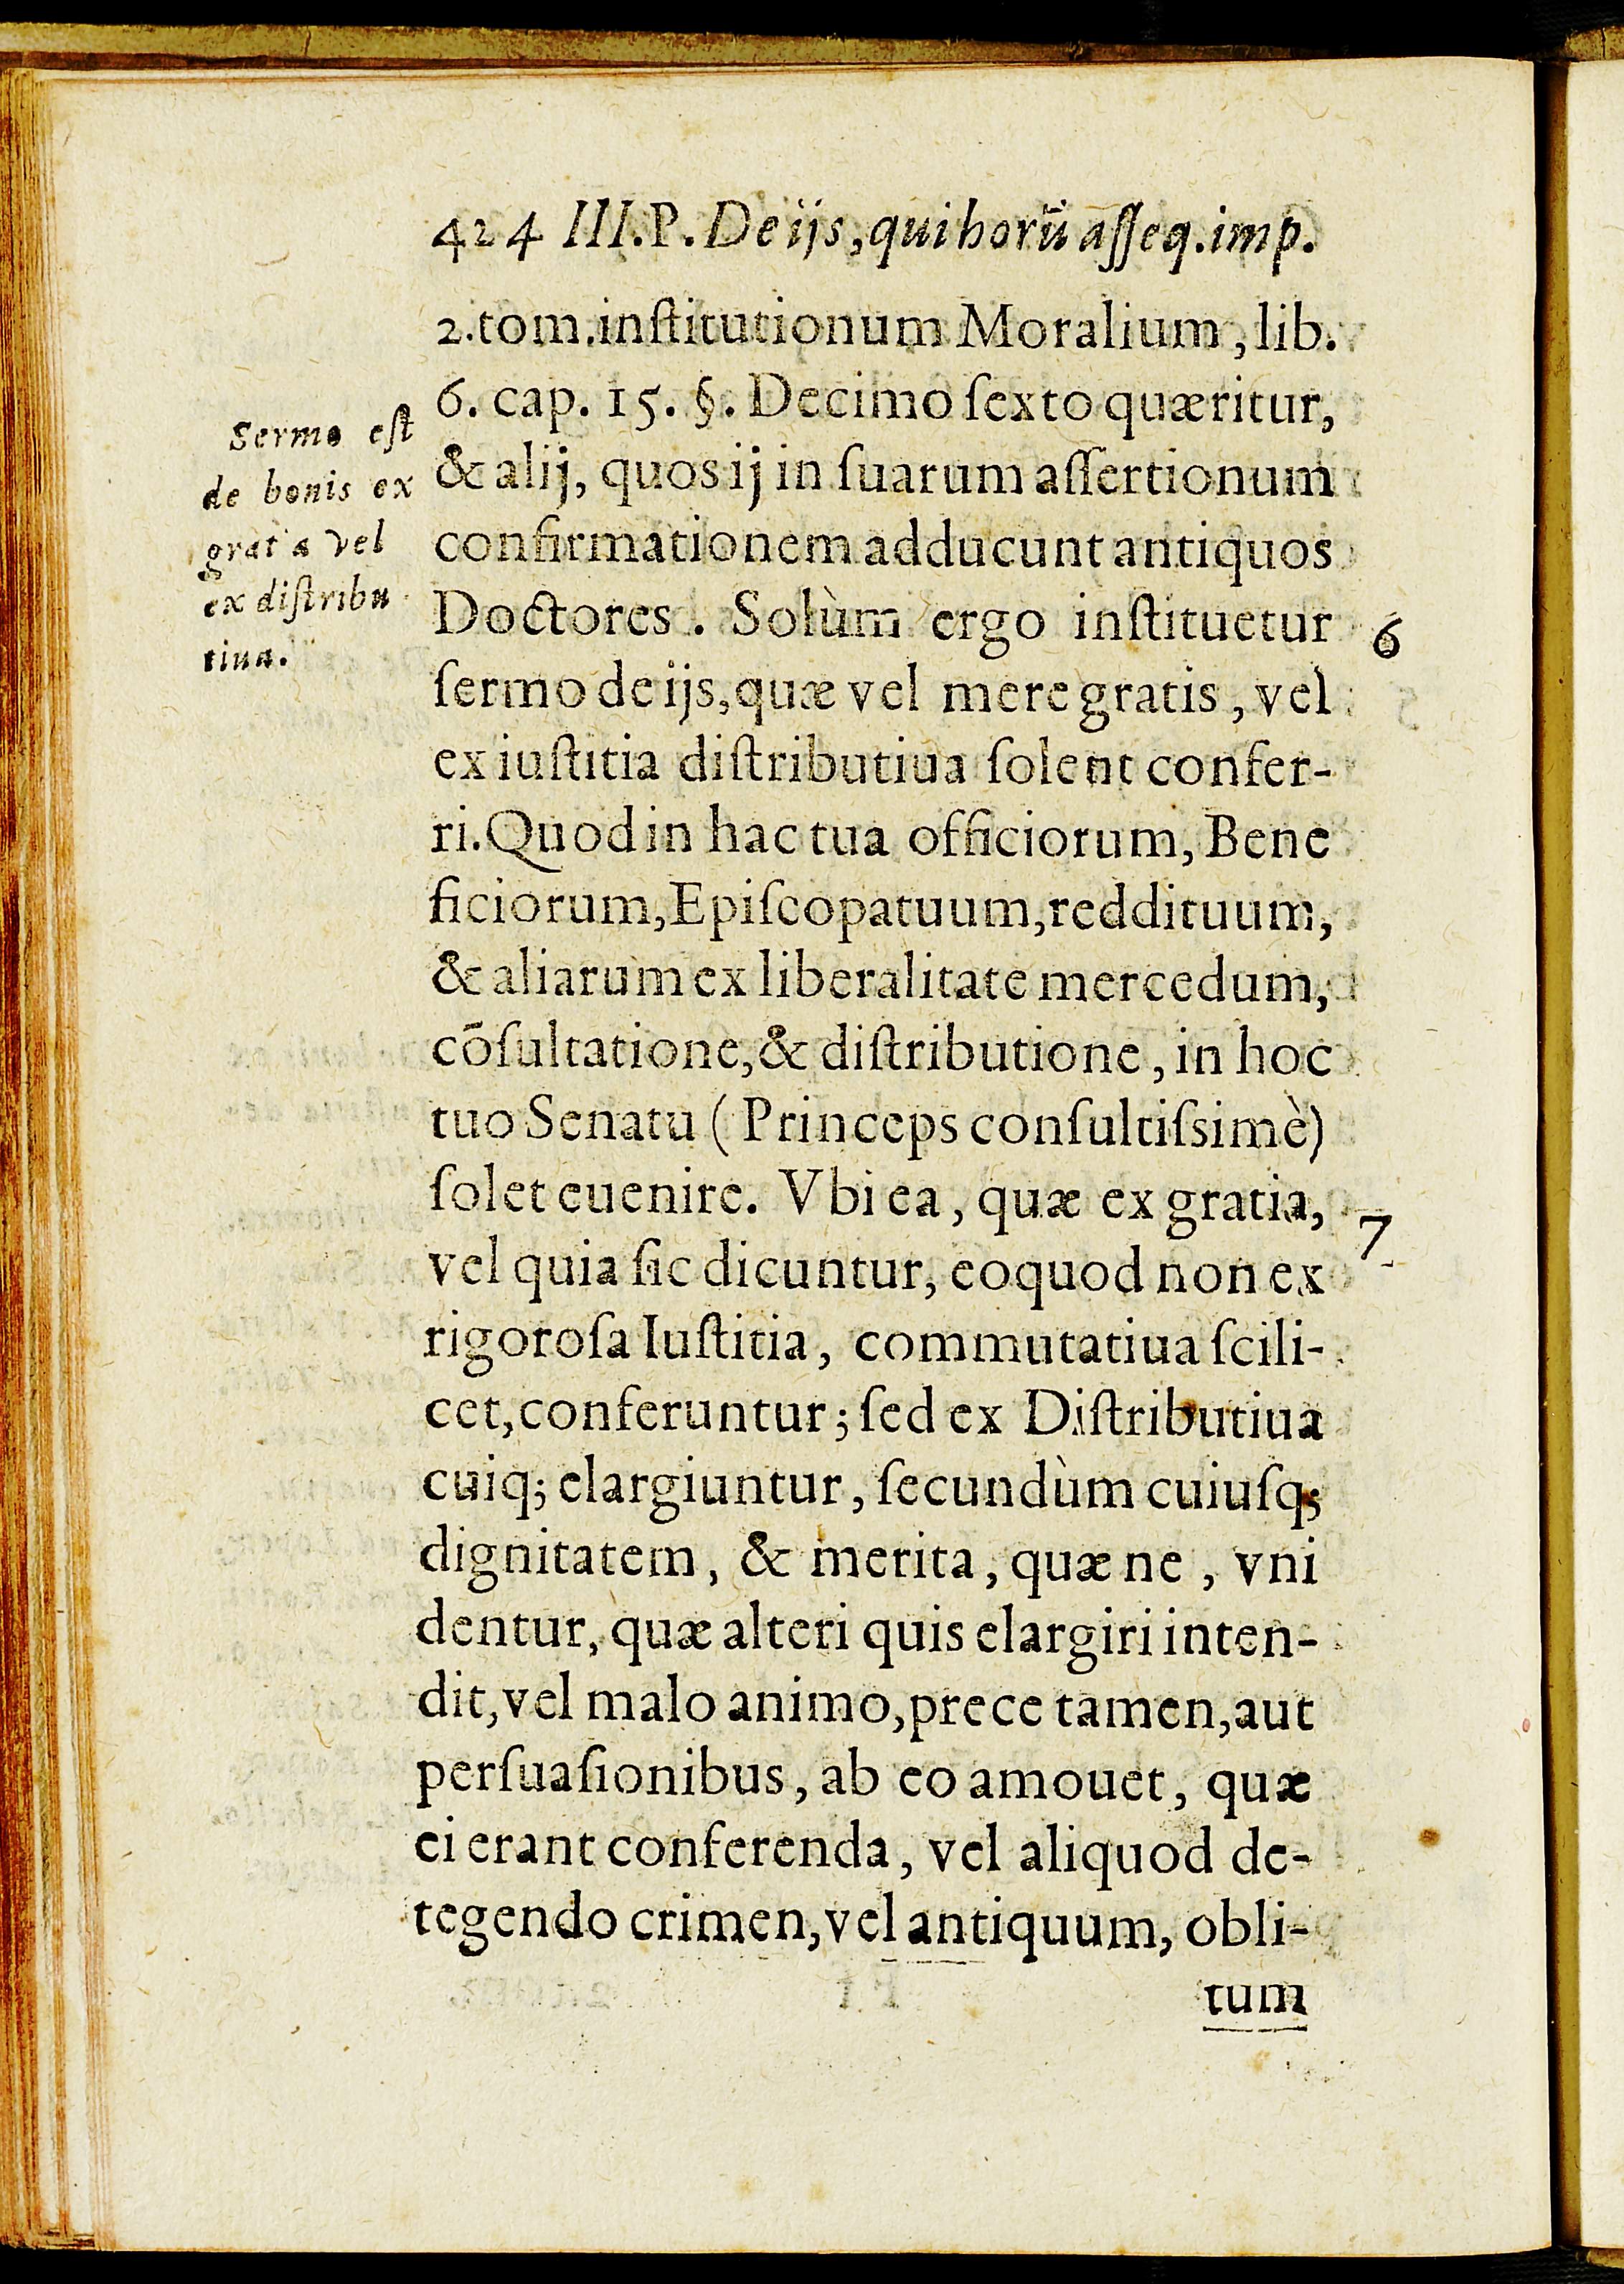 424 III.P. De ijs, qui horū aſſeq. imp.
2. tom. inſtitutionum Moralium, lib.
6. cap. 15. §. Decimo ſexto quæritur,
& alij, quos ij in ſuarum aſſertionum
confirmationem adducunt antiquos
Doctores. Solùm ergo inſtituetur
ſermo de ijs, quæ vel mere gratis, vel
ex iuſtitia diſtributiua ſolent confer-
ri. Quod in hac tua officiorum, Bene
ficiorum, Epiſcopatuum, reddituum,
& aliarum ex liberalitate mercedum,
cōſultatione, & diſtributione, in hoc
tuo Senatu ( Princeps conſultiſsimè)
ſolet euenire. Vbi ea, quæ ex gratia,
vel quia ſic dicuntur, eoquod non ex
rigoroſa Iuſtitia, commutatiua ſcili-
cet, conferuntur; ſed ex Diſtributiua
cuiq; elargiuntur, ſecundùm cuiuſq;
dignitatem, & merita, quæ ne, vni
dentur, quæ alteri quis elargiri inten-
dit, vel malo animo, prece tamen, aut
perſuaſionibus, ab eo amouet, quæ
ei erant conferenda, vel aliquod de-
tegendo crimen, vel antiquum, obli-
tum
Sermo eſt
de bonis ex
grat a vel
ex diſtribu
tiua.
6
7